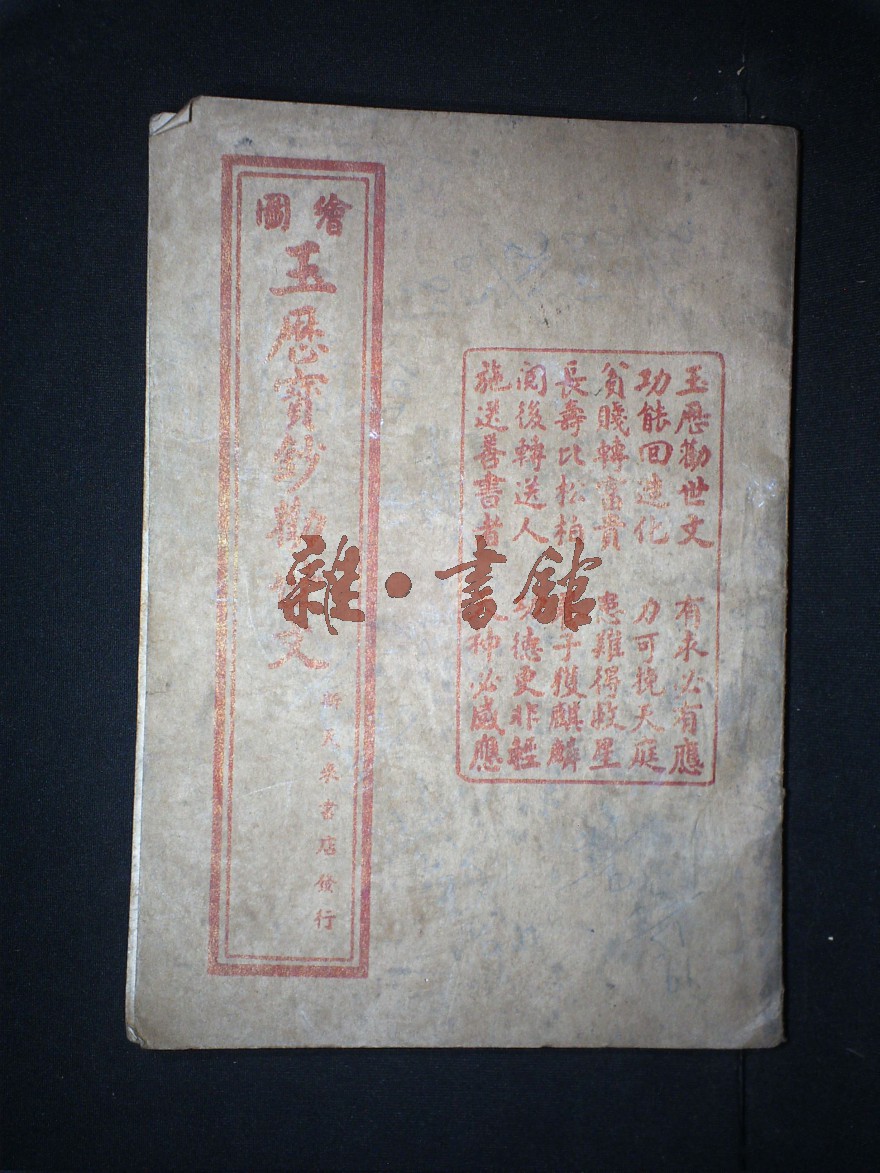 玉厯勸世文 有求必有應
功能回造化 力可挽天庭
貧賤轉富貴 患難得救星
長壽比松柏 子獲麒麟
閱後轉送人 功德更非輕
施送善書者 神必感應
繪圖
玉厯寳鈔勸文
書店發行
雜·書館